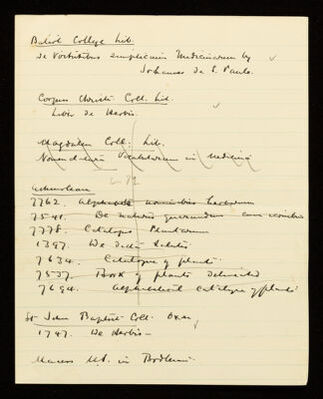 Baliol College Lib.
De Virtutibus simplicium Medicinarum by
Johannes de S. Paulo.
Corpus Christi Coll. Lib.
Liber de Herbis.
Magdalen Coll. Lib.
Nomenclatura Vocabulorum in Medicina
Ashmolean
7762.
7541. De naturis
7778. Catalogus Plantarum
1397.
7634. Catalogue of plants
7537. Book of plants delineated
7694. Alphabetical catalogue of plants
St John Baptist Coll. Oxon
1747. De Herbis
Macers MS. in Bodleian